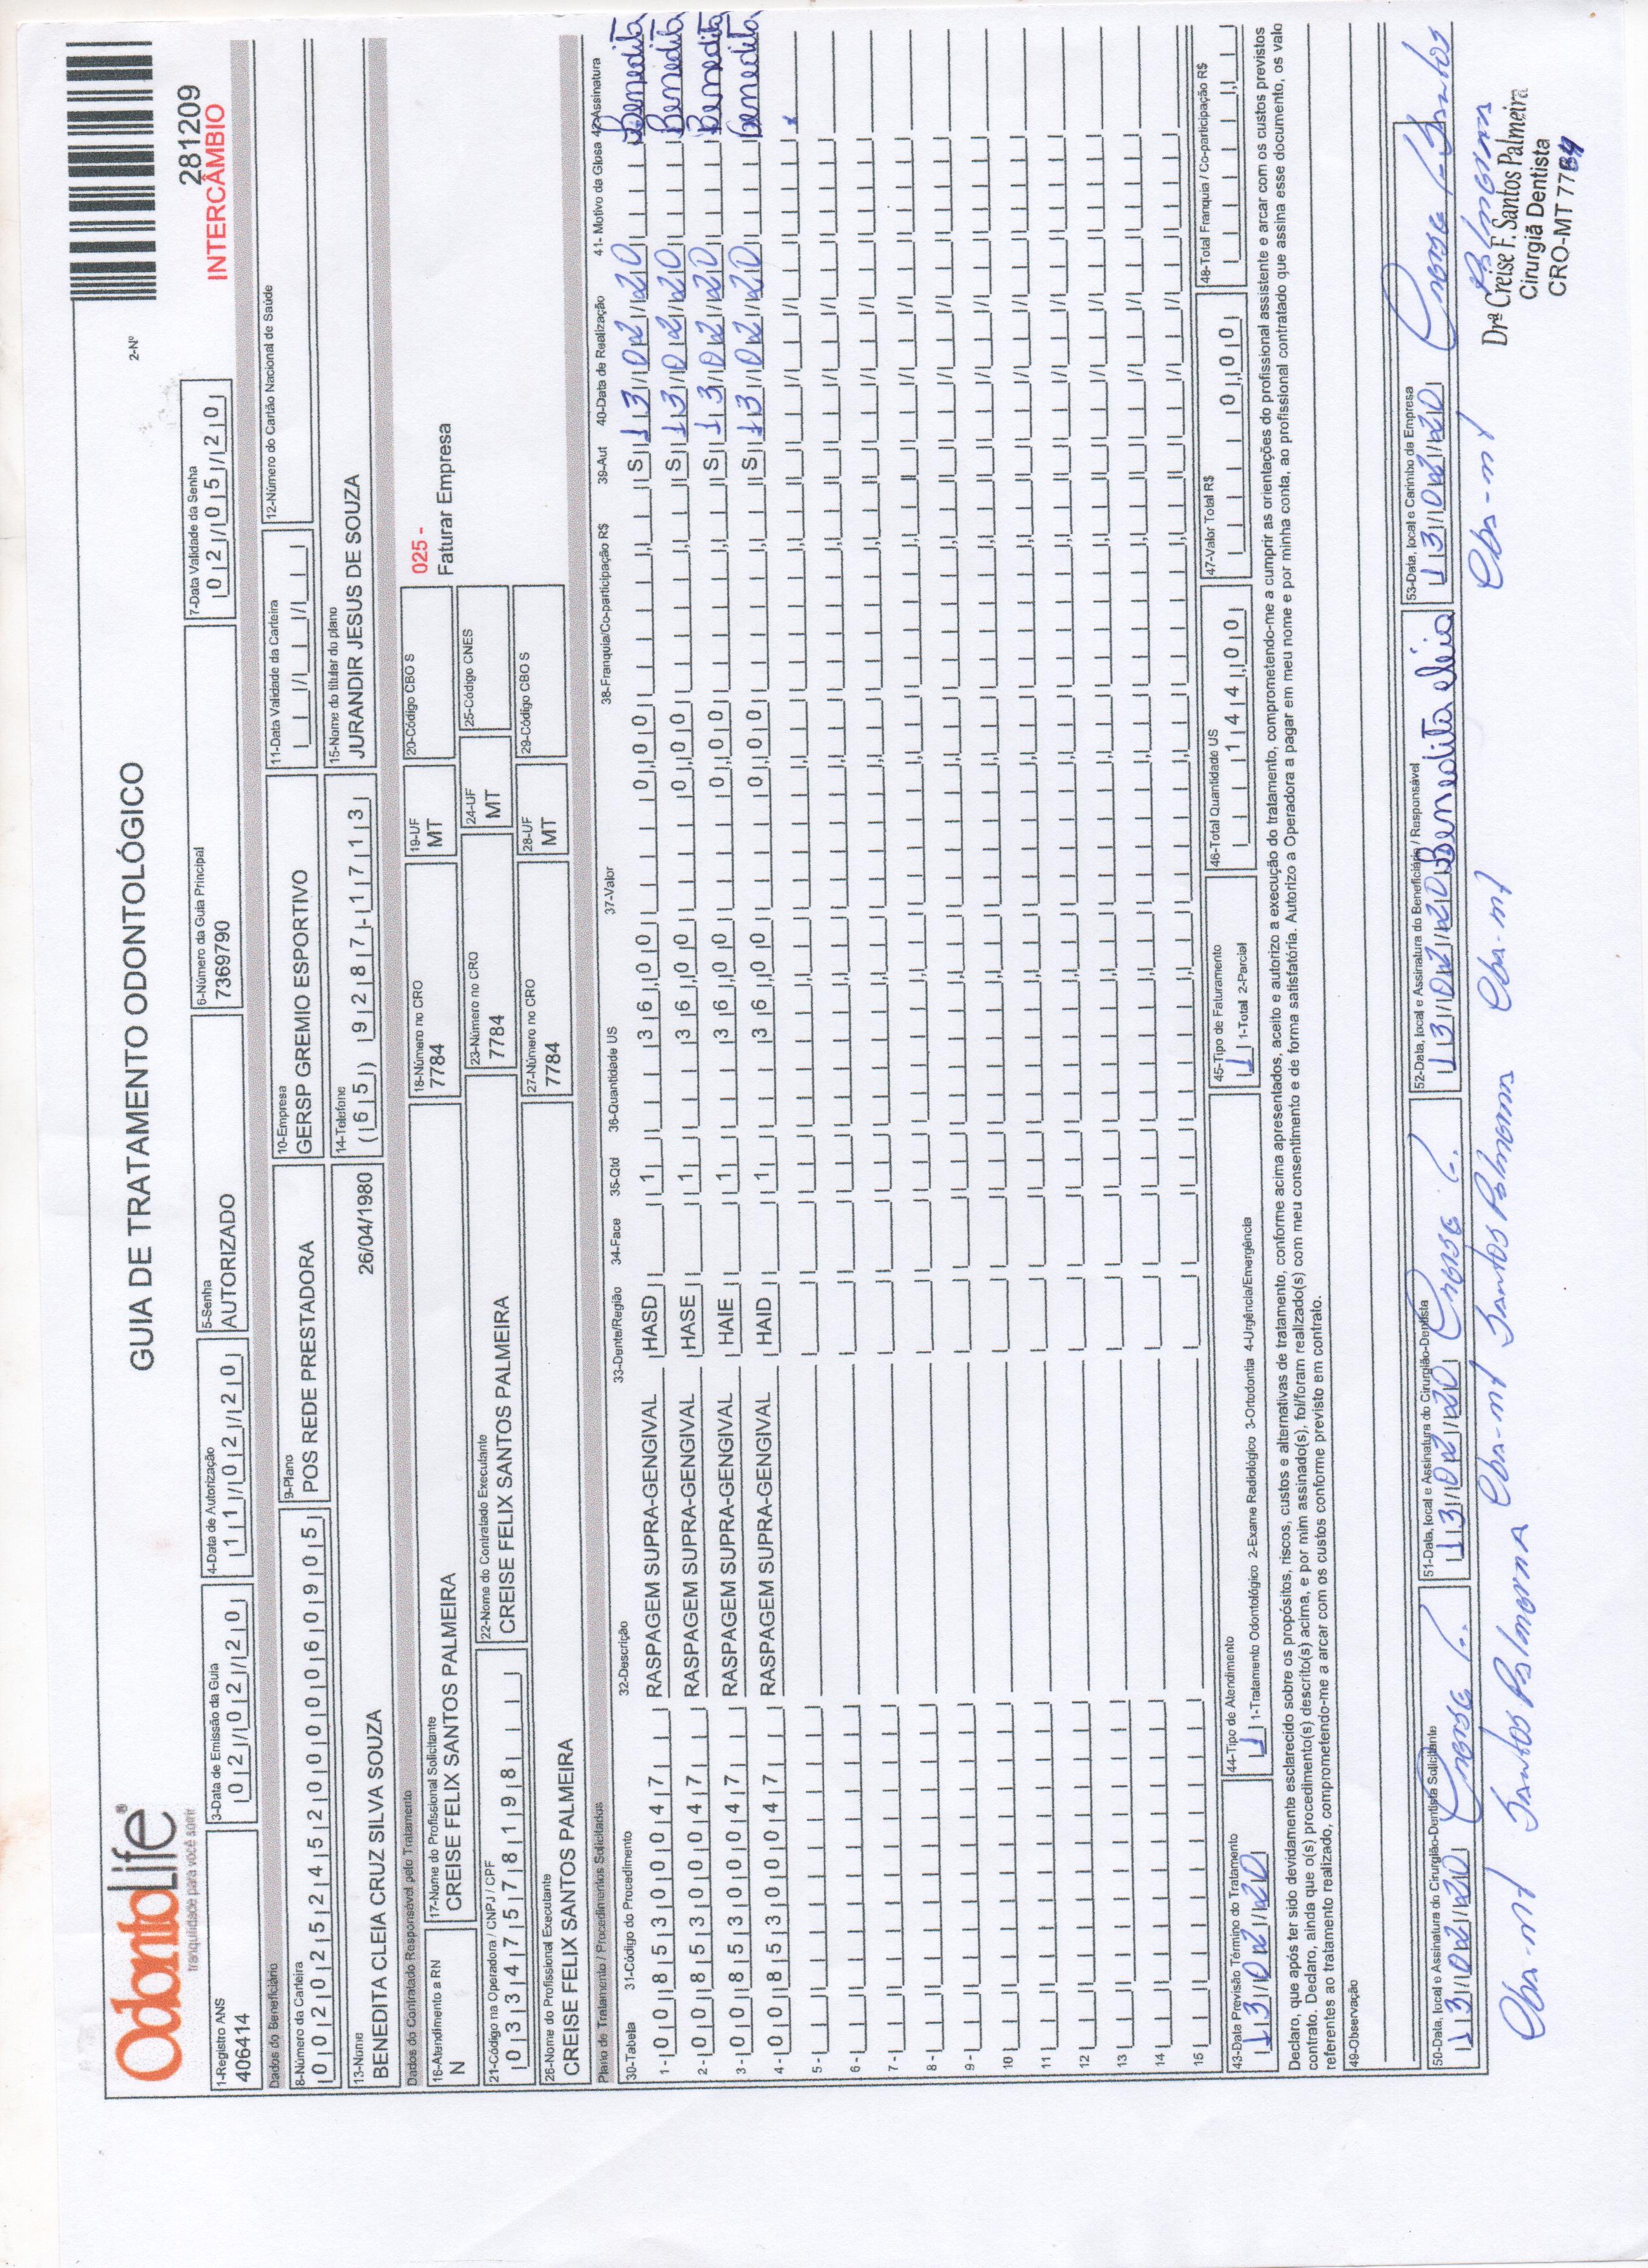 OdontoLife®
tranquilidade para você sorrir
GUIA DE TRATAMENTO ODONTOLÓGICO
2-Nº
281209
INTERCÂMBIO
1-Registro ANS
406414
3-Data de Emissão da Guia
02/02/20
4-Data de Autorização
11/02/20
5-Senha
AUTORIZADO
6-Número da Guia Principal
7369790
7-Data Validade da Senha
02/05/20
Dados do Beneficiário
8-Número da Carteira
00202524520000060905
9-Plano
POS REDE PRESTADORA
10-Empresa
GERSP GREMIO ESPORTIVO
11-Data Validade da Carteira
12-Número do Cartão Nacional de Saúde
13-Nome
BENEDITA CLEIA CRUZ SILVA SOUZA
26/04/1980
14-Telefone
(65) 99287-1713
15-Nome do titular do plano
JURANDIR JESUS DE SOUZA
Dados do Contratado Responsável pelo Tratamento
16-Atendimento a RN
N
17-Nome do Profissional Solicitante
CREISE FELIX SANTOS PALMEIRA
18-Número no CRO
7784
19-UF
MT
20-Código CBO S
025 -
Faturar Empresa
21-Código na Operadora / CNPJ / CPF
03347578198
22-Nome do Contratado Executante
CREISE FELIX SANTOS PALMEIRA
23-Número no CRO
7784
24-UF
MT
25-Código CNES
26-Nome do Profissional Executante
CREISE FELIX SANTOS PALMEIRA
27-Número no CRO
7784
28-UF
MT
29-Código CBO S
Plano de Tratamento / Procedimentos Solicitados
30-Tabela 31-Código do Procedimento 32-Descrição 33-Dente/Região 34-Face 35-Qtd 36-Quantidade US 37-Valor 38-Franquia/Co-participação R$ 39-Aut 40-Data de Realização 41- Motivo da Glosa 42-Assinatura
1- 00 85300047 RASPAGEM SUPRA-GENGIVAL HASD 1 36,00 0,00 S 13/02/20 Benedita
2- 00 85300047 RASPAGEM SUPRA-GENGIVAL HASE 1 36,00 0,00 S 13/02/20 Benedita
3- 00 85300047 RASPAGEM SUPRA-GENGIVAL HAIE 1 36,00 0,00 S 13/02/20 Benedita
4- 00 85300047 RASPAGEM SUPRA-GENGIVAL HAID 1 36,00 0,00 S 13/02/20 Benedita
5-
6-
7-
8-
9-
10
11
12
13
14
15
43-Data Previsão Término do Tratamento
13/02/20
44-Tipo de Atendimento
1 1-Tratamento Odontológico 2-Exame Radiológico 3-Ortodontia 4-Urgência/Emergência
45-Tipo de Faturamento
1 1-Total 2-Parcial
46-Total Quantidade US
144,00
47-Valor Total R$
0,00
48-Total Franquia / Co-participação R$
Declaro, que após ter sido devidamente esclarecido sobre os propósitos, riscos, custos e alternativas de tratamento, conforme acima apresentados, aceito e autorizo a execução do tratamento, comprometendo-me a cumprir as orientações do profissional assistente e arcar com os custos previstos
contrato. Declaro, ainda que o(s) procedimento(s) descrito(s) acima, e por mim assinado(s), foi/foram realizado(s) com meu consentimento e de forma satisfatória. Autorizo a Operadora a pagar em meu nome e por minha conta, ao profissional contratado que assina esse documento, os valo
referentes ao tratamento realizado, comprometendo-me a arcar com os custos conforme previsto em contrato.
49-Observação
50-Data, local e Assinatura do Cirurgião-Dentista Solicitante
13/02/20 Creise F.
Cba-mt Santos Palmeira
51-Data, local e Assinatura do Cirurgião-Dentista
13/02/20 Creise F.
Cba-mt Santos Palmeira
52-Data, local e Assinatura do Beneficiário / Responsável
13/02/20 Benedita cleia
Cba-mt
53-Data, local e Carimbo da Empresa
13/02/20 Creise F. Santos
Cba-mt Palmeira
Drª Creise F. Santos Palmeira
Cirurgiã Dentista
CRO-MT 7784